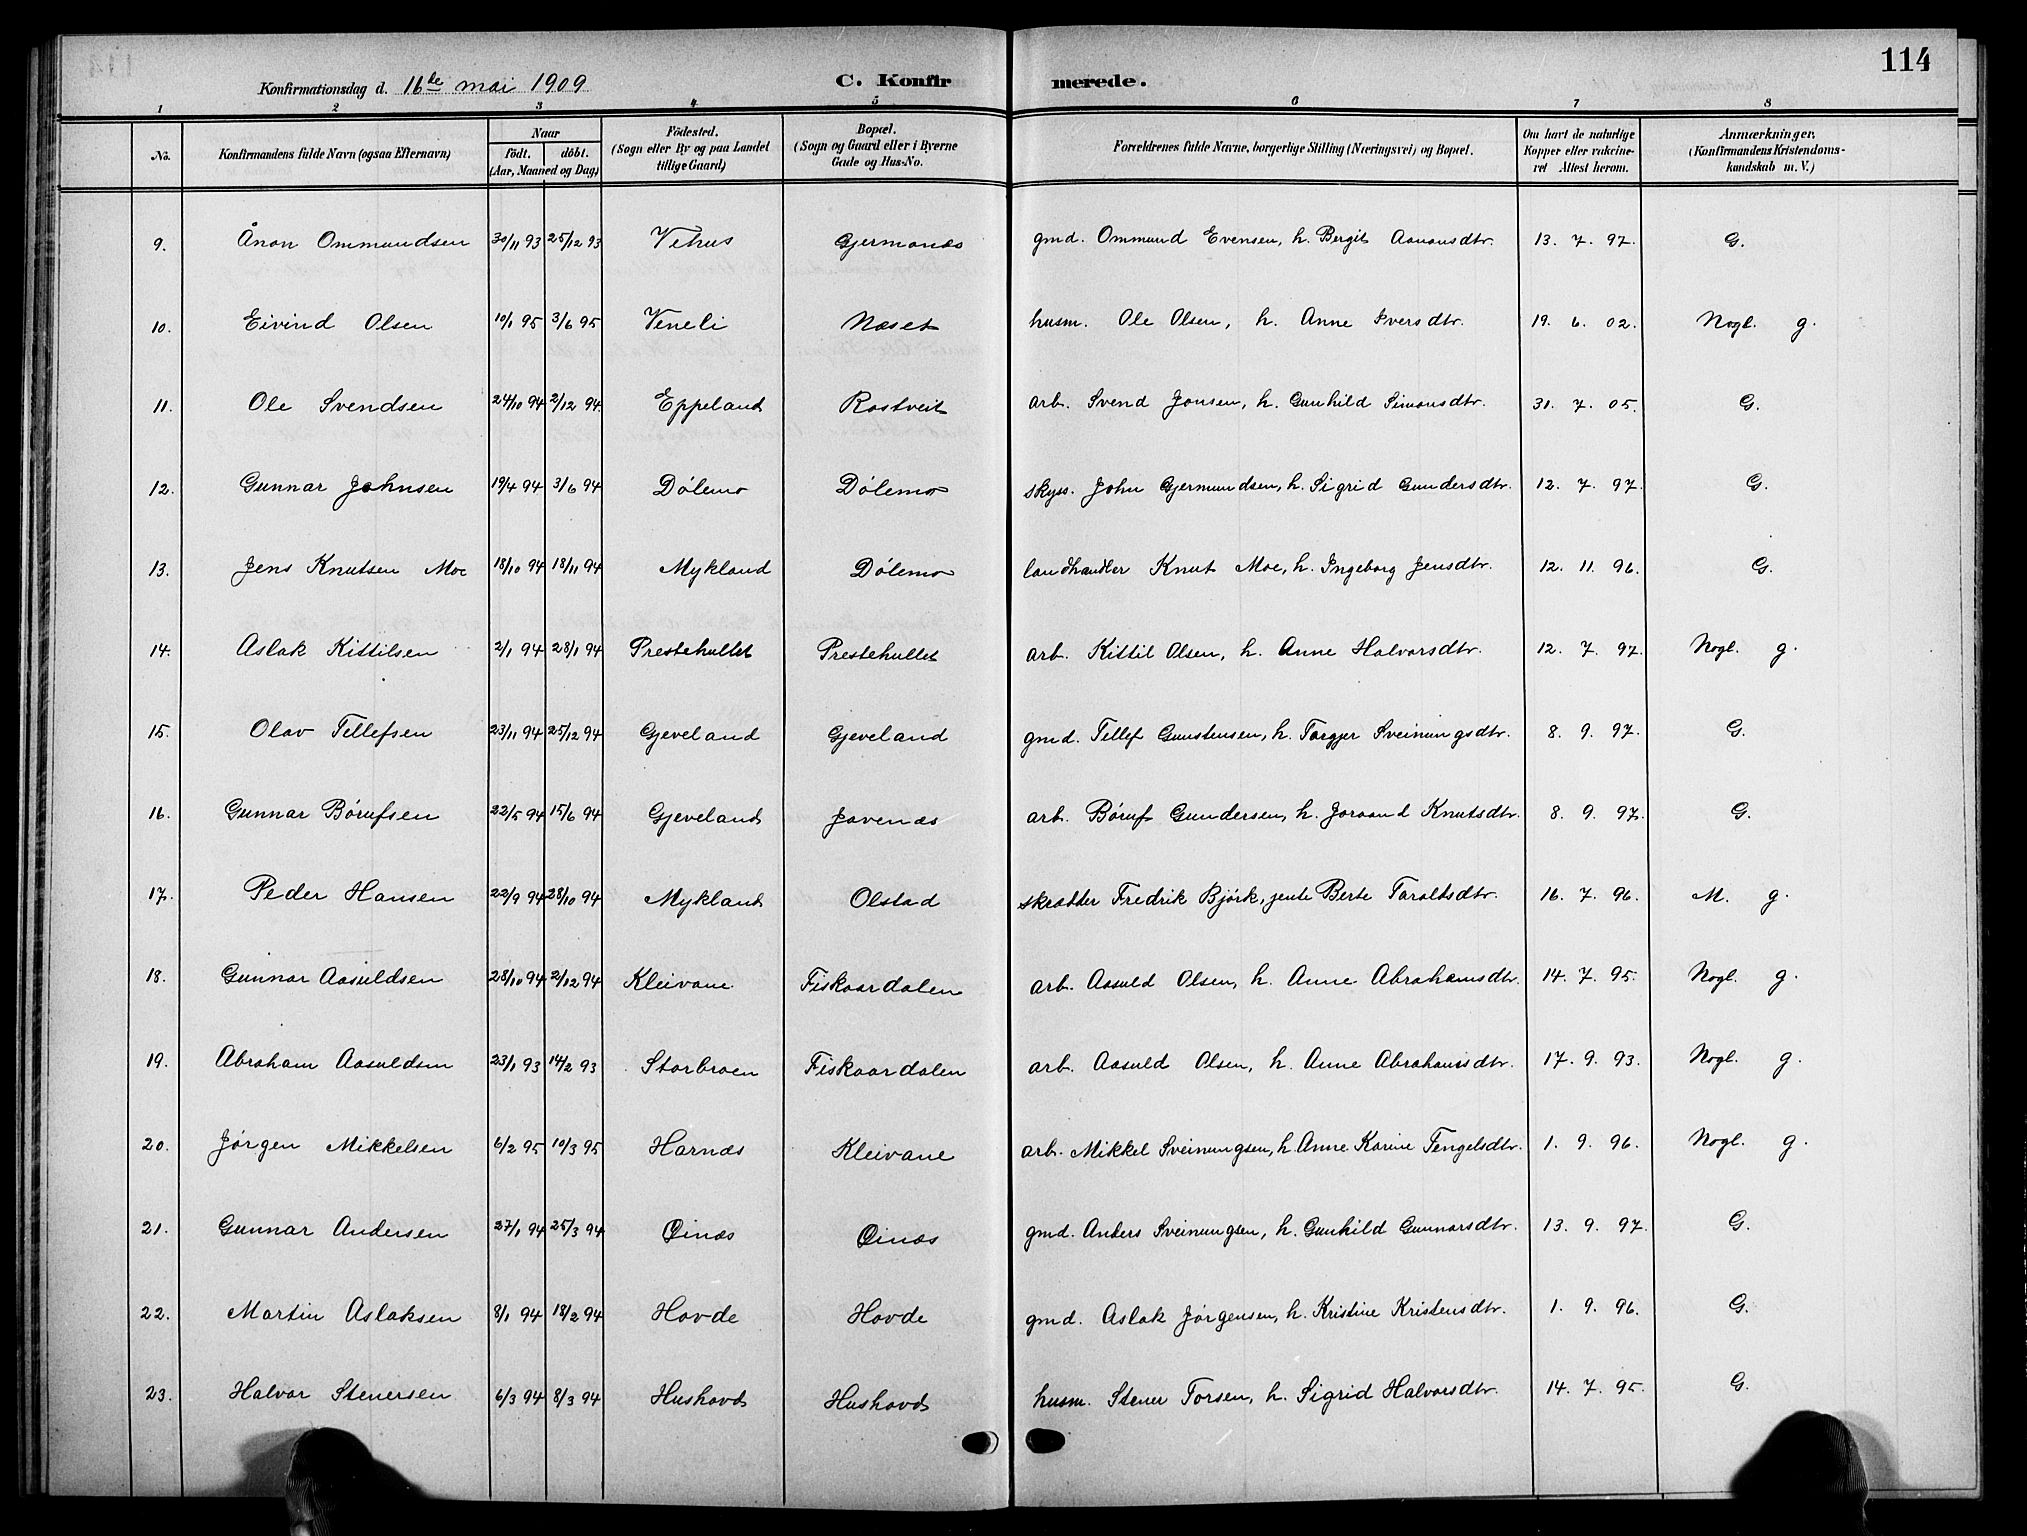 114
Konfirmationsdag d. 16de mai 1909 C. Konfirmerede.
1 2 3 4 5 6 7 8
No. Konfirmandens fulde Navn (ogsaa Efternavn) Naar födt. döbt. (Aar, Maaned og Dag) Födested. (Sogn eller By og paa Landet tillige Gaard) Bopæl. (Sogn og Gaard eller i Byerne Gade og Hus-No. Forældrenes fulde Navne, borgerlige Stilling (Næringsvei) og Bopæl. Om havt de naturlige Kopper eller vakcineret Attest herom. Anmærkninger. (Konfirmandens Kristendomskundskab m. V.)
9. Ånon Ommundsen 30/11 93 25/12 93 Vehus Gjermonæs gmd. Ommund Evensen, h. Bergit Aanonsdtr. 13. 7. 97. G.
10. Eivind Olsen 10/1 95 3/6 95 Veneli Næset husm. Ole Olsen, h. Anne Iversdtr. 19. 6. 02. Nogl. g.
11. Ole Svendsen 24/10 94 2/12 94. Eppeland Rostveit arb. Svend Jonsen, h. Gunhild Simonsdtr. 31. 7. 05. G.
12. Gunnar Johnsen 19/4 94 3/6 94 Dölemo Dölemo skyss. John Gjermundsen, h. Sigrid Gundersdtr. 12. 7. 97. G.
13. Jens Knutsen Moe 18/10 94 18/11 94 Mykland Dölemo landhandler Knut Moe, h. Ingeborg Jensdtr. 12. 11. 96. G.
14. Aslak Kittilsen 2/1 94 28/1 94 Prestehullet Prestehullet arb. Kittil Olsen, h. Anne Halvorsdtr. 12. 7. 97. Nogl. g.
15. Olav Tellefsen 23/11 94 25/12 94 Gjeveland Gjeveland gmd. Tellef Gunstensen, h. Torgjer Sveinungsdtr. 8. 9. 97. G.
16. Gunnar Börufsen 22/5 94 15/6 94 Gjeveland Jovenæs arb. Böruf Gundersen, h. Joraand Knutsdtr. 8. 9. 97. G.
17. Peder Hansen 22/9 94 28/10 94 Mykland Olstad skrædder Fredrik Björk, jente Berte Taraldsdtr. 16. 7. 96. M. g.
18. Gunnar Aasuldsen 28/10 94 2/12 94 Kleivane Fiskaardalen arb. Aasuld Olsen, h. Anne Abrahamsdtr. 14. 7. 95. Nogl. g.
19. Abraham Aasuldsen 23/1 93 14/2 93 Storbroen Fiskaardalen arb. Aasuld Olsen, h. Anne Abrahamsdtr. 17. 9. 93. Nogl. g.
20. Jörgen Mikkelsen 6/2 95 10/3 95 Harnæs Kleivane arb. Mikkel Sveinungsen, h. Anne Karine Tengelsdtr. 1. 9. 96. Nogl. g.
21. Gunnar Andersen 27/1 94 25/3 94 Øinæs Øinæs gmd. Anders Sveinungsen, h. Gunhild Gunnarsdtr. 13. 9. 97. G.
22. Martin Aslaksen 8/1 94 18/2 94 Hovde Hovde gmd. Aslak Jörgensen, h. Kristine Kristensdtr. 1. 9. 96. G.
23. Halvor Stenersen 6/3 94 8/3 94 Hushovd Hushovd husm. Stener Torsen, h. Sigrid Halvorsdtr. 14. 7. 95. G.